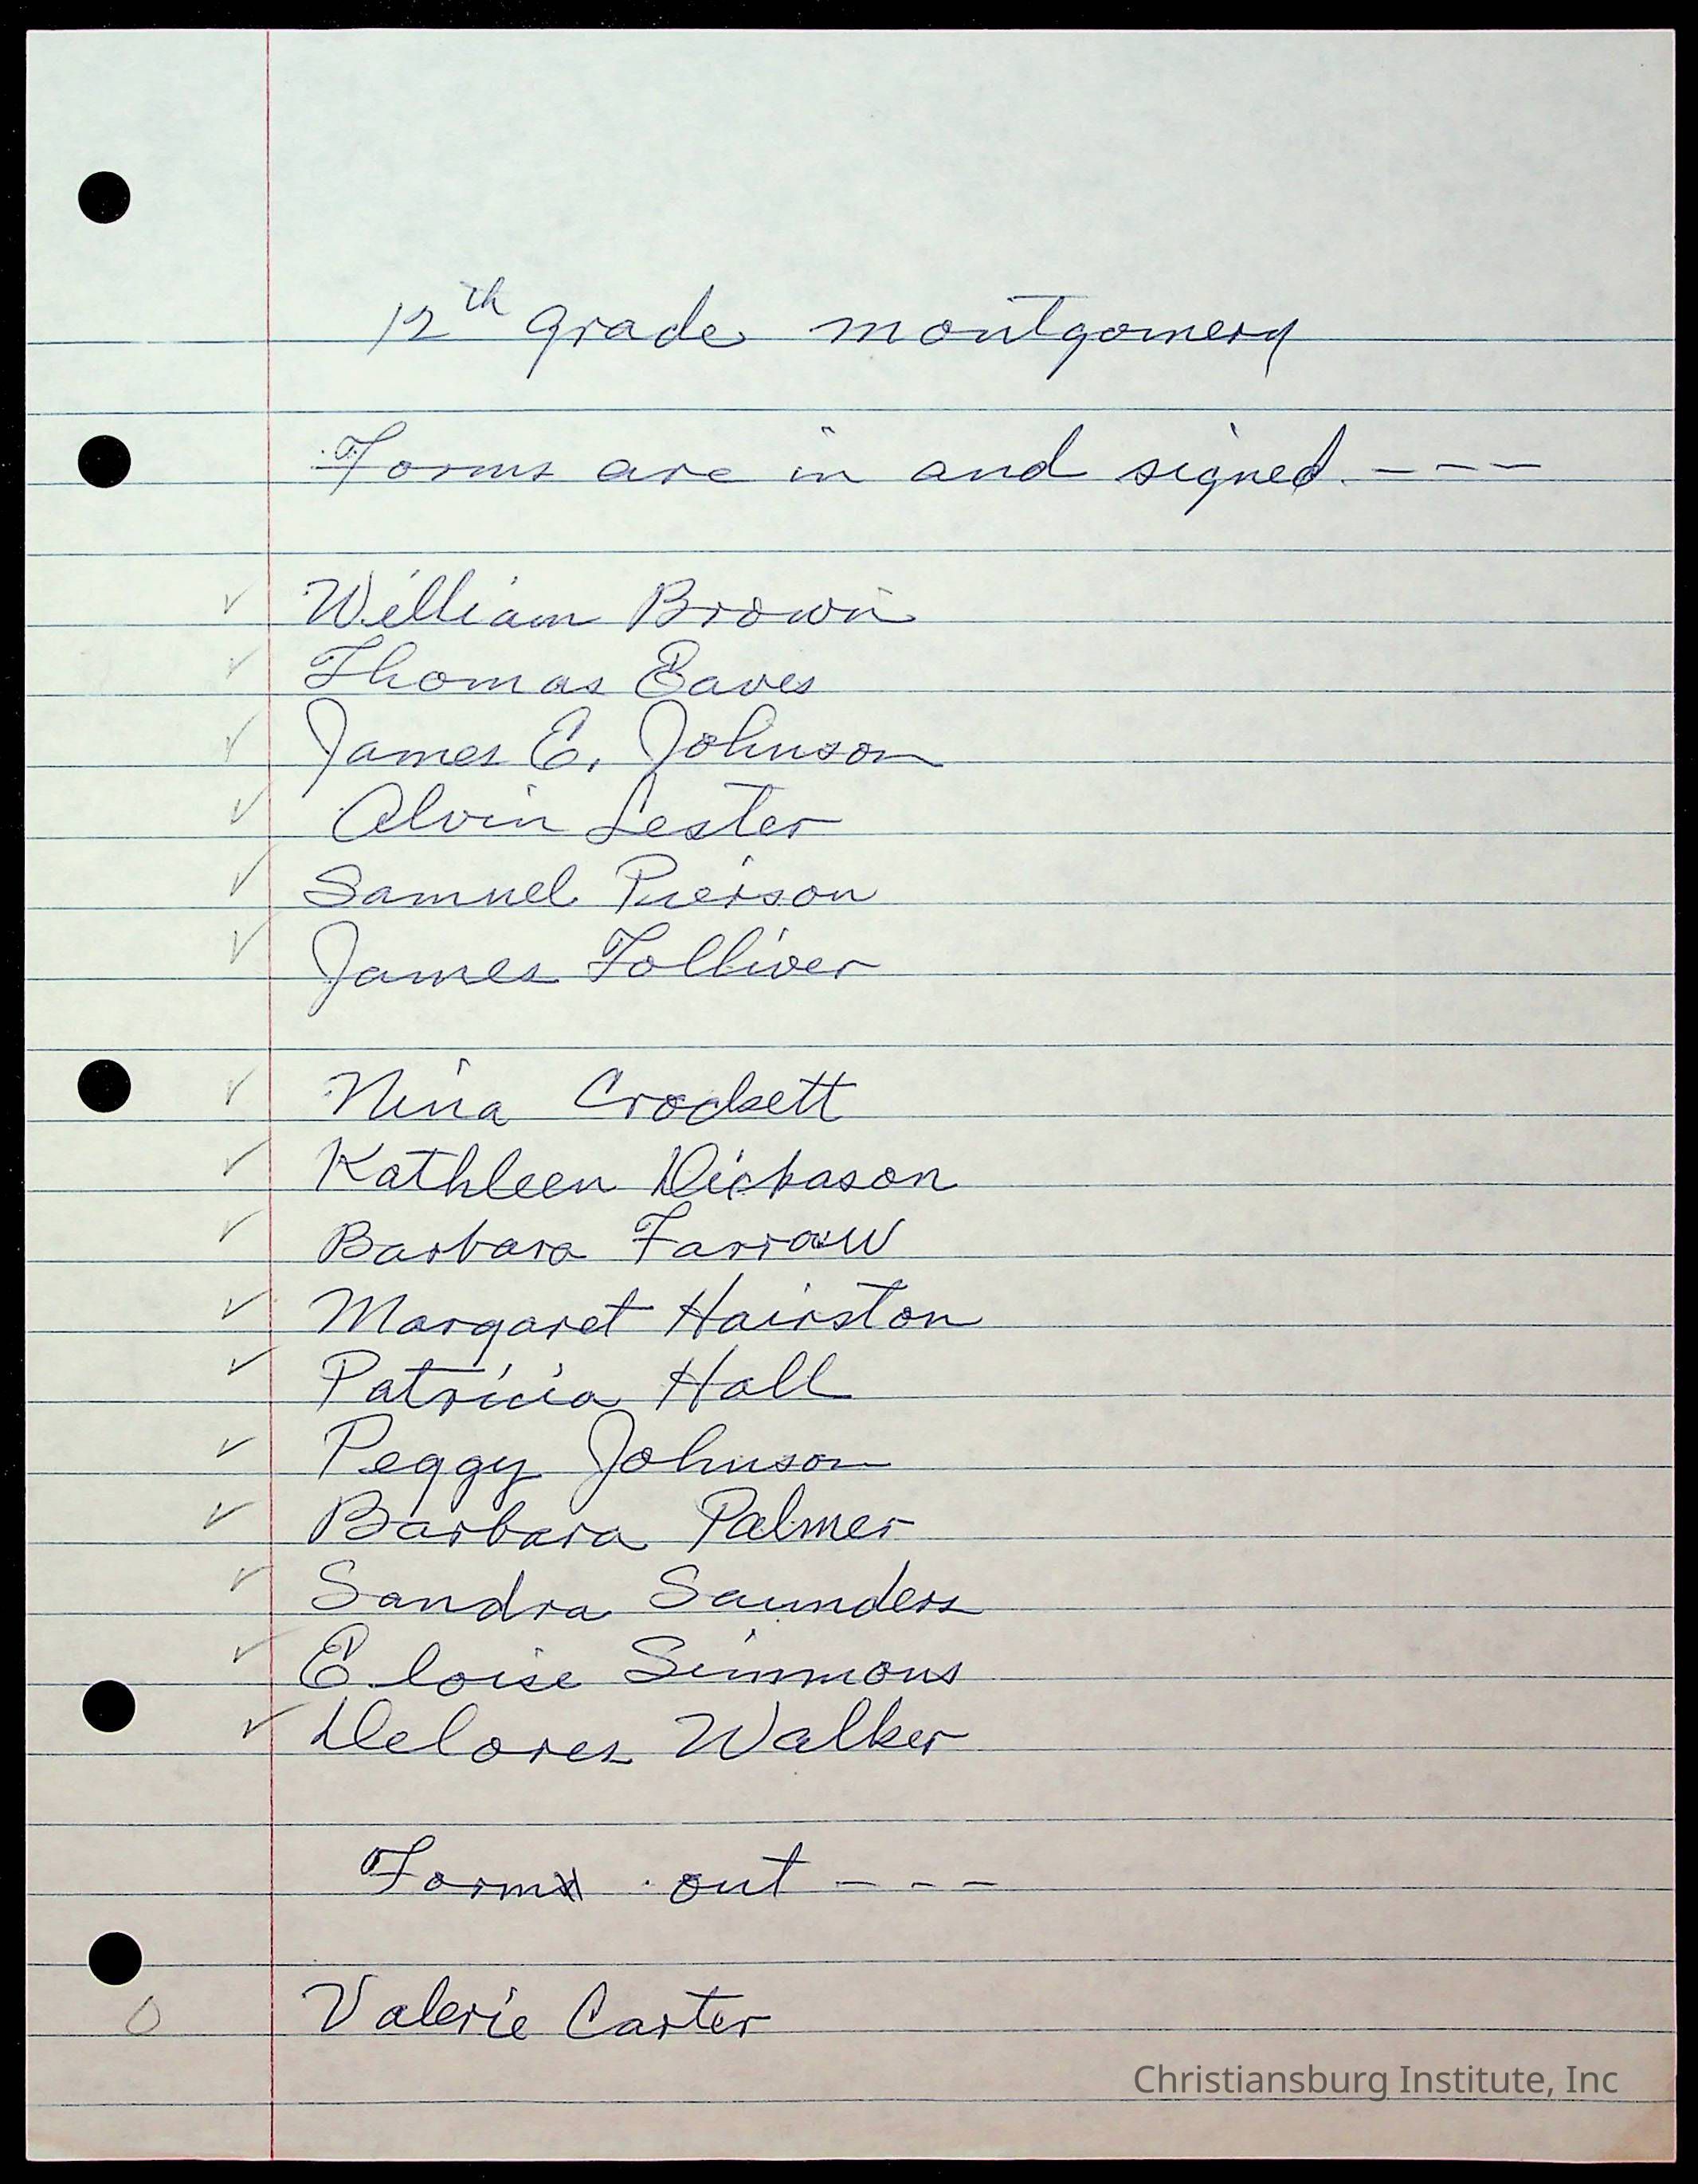 12th grade montgomery
Forms are in and signed - - -
✓ William Brown
✓ Thomas Eaves
✓ James E. Johnson
✓ Alvin Lester
✓ Samuel Pierson
✓ James Tolliver
✓ Nina Crockett
✓ Kathleen Dickason
✓ Barbara Farrow
✓ Margaret Hairston
✓ Patricia Hall
✓ Peggy Johnson
✓ Barbara Palmer
✓ Sandra Saunders
✓ Eloise Simmons
✓ Delores Walker
Form out - - -
0 Valerie Carter
Christiansburg Institute, Inc